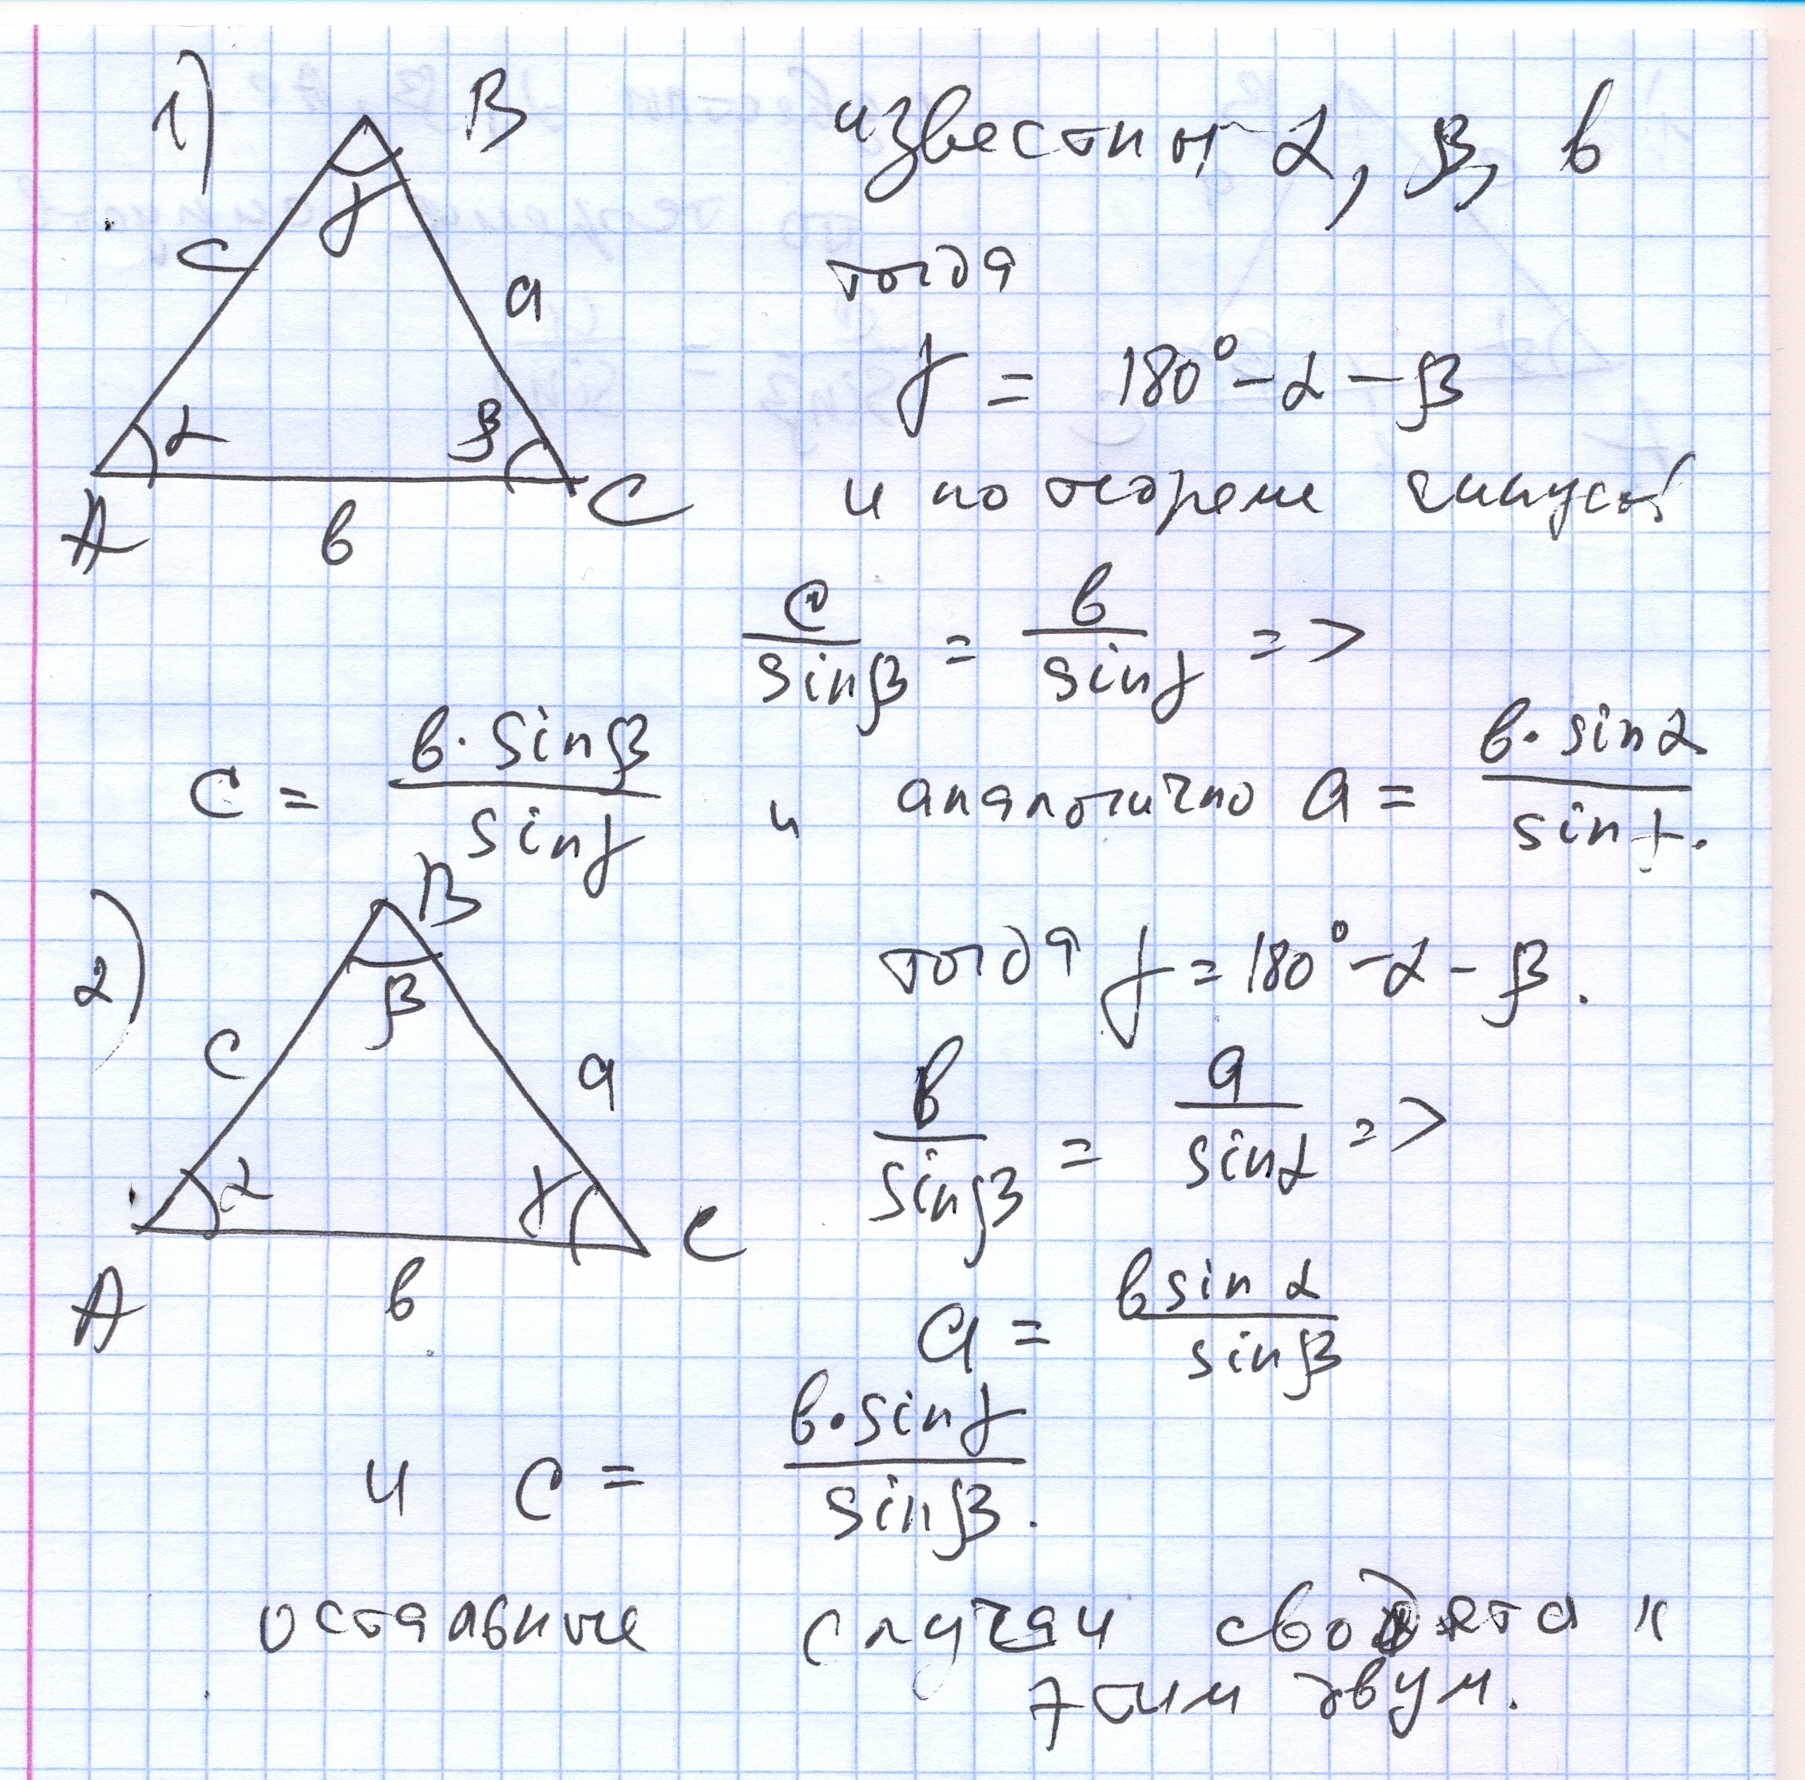 1) B известны α, β, b
γ
c
a
тогда
γ = 180° - α - β
α β
A b C
и по теореме синусов
c/sinβ = b/sinγ =>
c = b·sinβ/sinγ и аналогично a = b·sinα/sinγ.
2) B
β
тогда γ = 180° - α - β.
c
a
b/sinβ = a/sinα =>
α γ
A b C
a = b sin α/sinβ
и c = b·sinγ/sinβ.
остальные случаи сводятся к
этим двум.